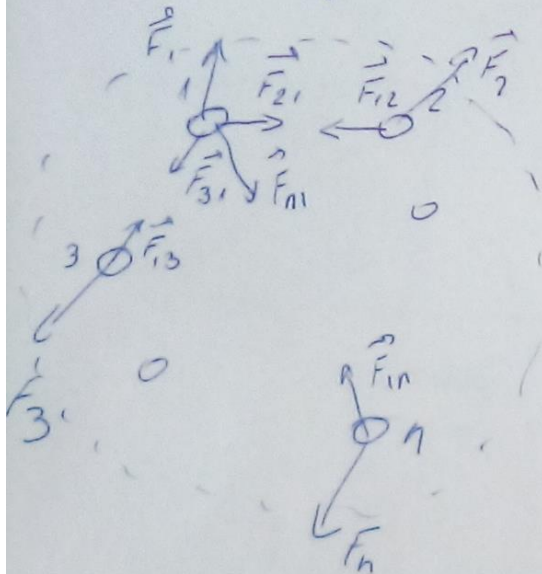 F⃗₁
1
F⃗₂₁
F⃗₁₂
F⃗₂
2
F⃗₃₁
F⃗ₙ₁
3
F⃗₁₃
F⃗₃
F⃗₁ₙ
n
F⃗ₙ